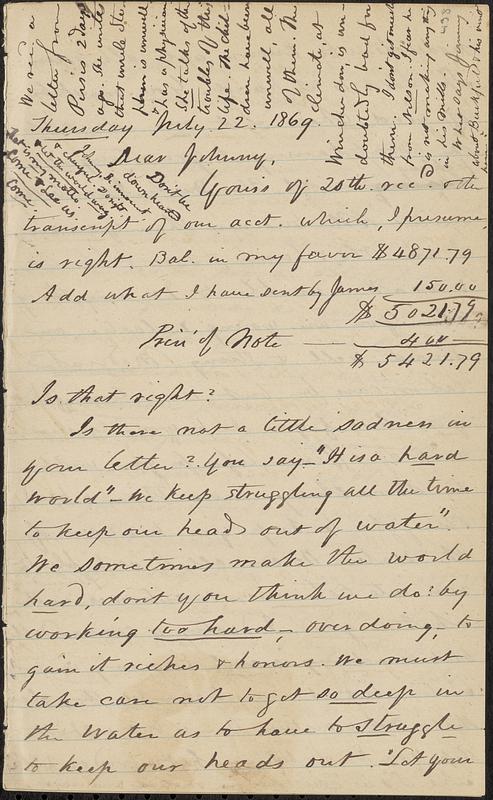 We rec'd a
letter from
Persis 2 days
ago. She writes
that uncle Ste-
phen is unwell
has a physician
She talks of the
troubles of this
life. The chil-
dren have been
unwell, all
of them. The
climate, at
Winchendon, is un-
doubtedly bad for
them. I dont get much
from Nelson. I fear he
is not making any thing
in his Mills.
What says Jimmy
about Buckfield & his
438
Thursday July 22. 1869.
Dear Johnny,
Dont be
down hearted
& wth the world wag
is my motto.
Come & see us.
Come
Yours of 20th. rec. & the
transcript of our acct. which, I presume,
is right. Bal. in my favor $4871.79
Add what I have sent by James 150.00
$ 5021.79
Prin' of Note — 400
$ 5421.79
Is that right?
Is there not a little sadness in
your letter? You say—"It is a hard
world"—We keep struggling all the time
to keep our heads out of water".
We sometimes make the world
hard, dont you think we do? by
working too hard,—over doing,—to
gain it riches & honors. We must
take care not to get so deep in
the water as to have to struggle
to keep our heads out. "Let your